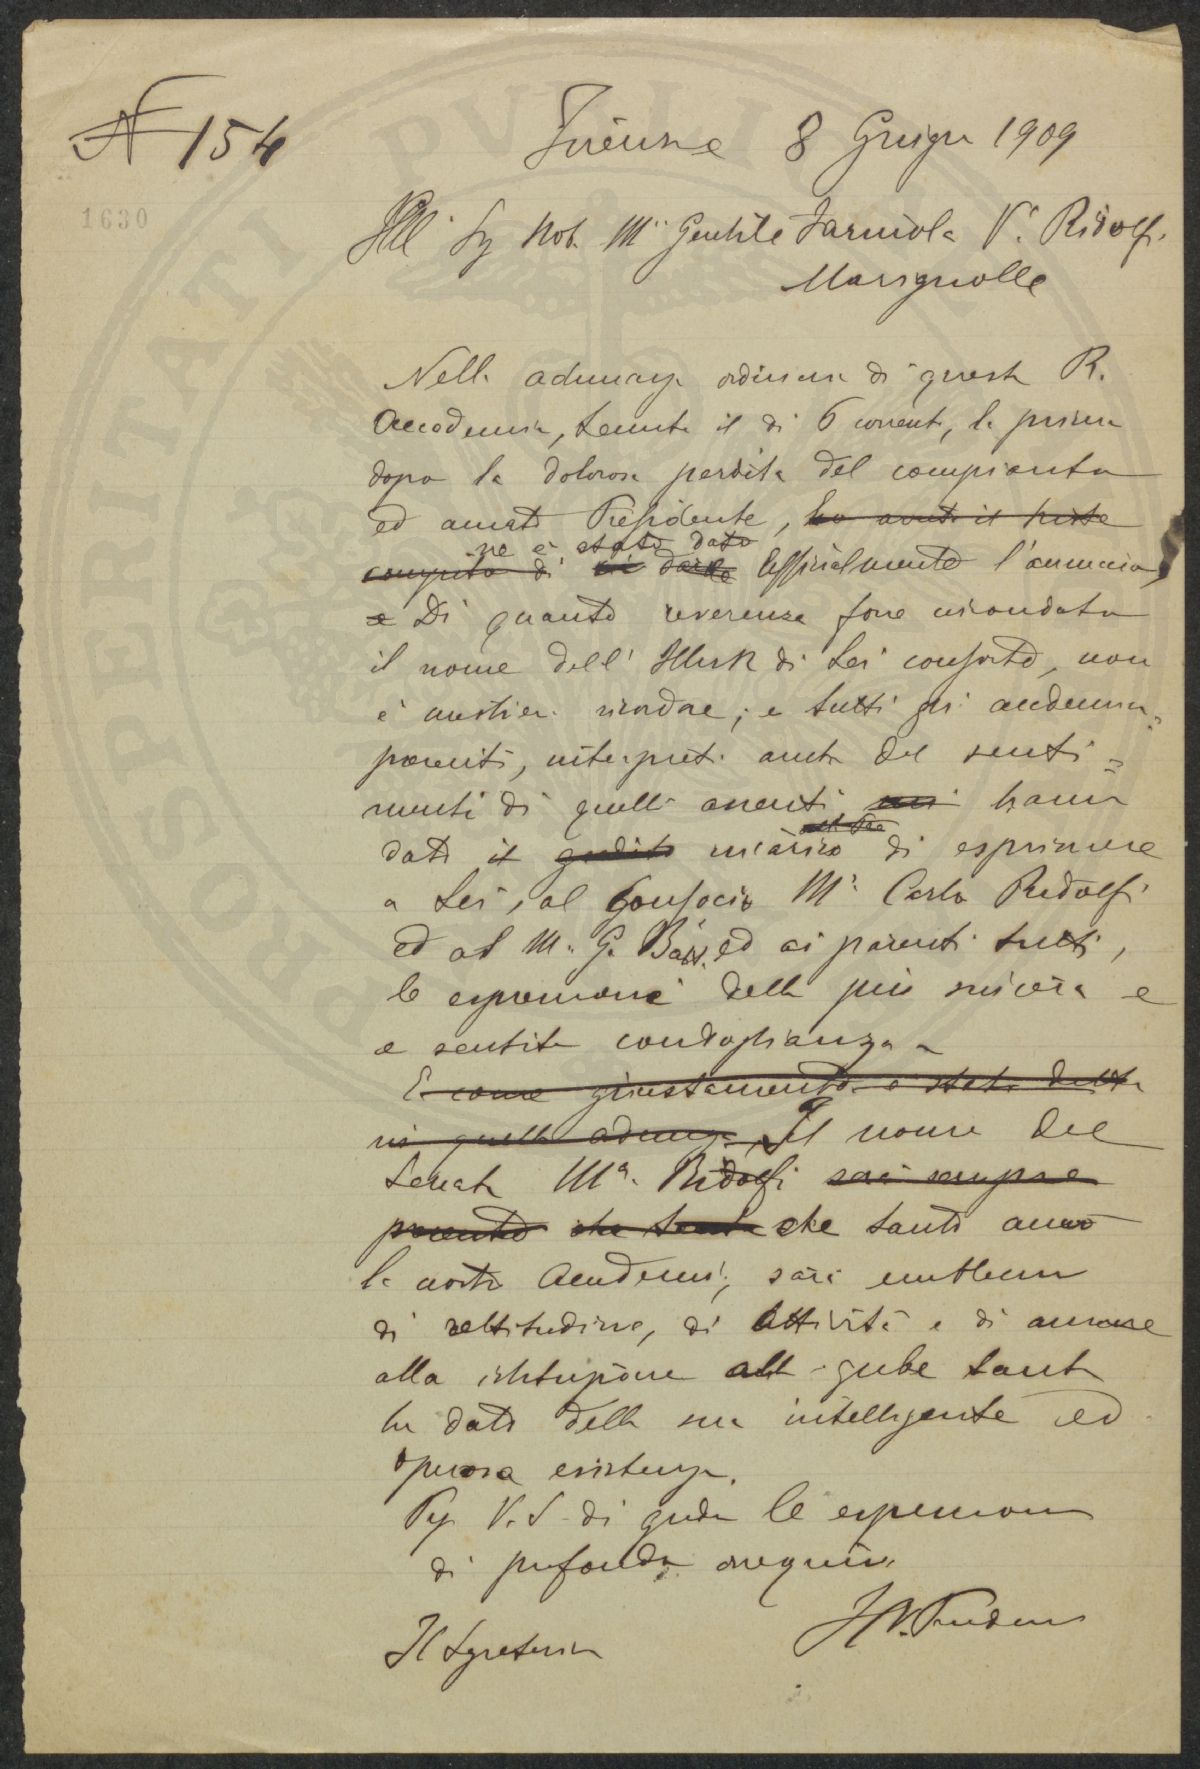 N 154
Firenze 8 Giugno 1909
1630
Ill. Sig Nob. M. Gentile Farinola V. Ridolfi
Marignolle
Nella adunanza ordinaria di questa R.
Accademia, tenuta il dì 6 corrente, la prima
dopo la dolorosa perdita del compianto
ed amato Presidente, ho avuto il triste
ne è stato dato
compito di dare ufficialmente l'annuncio,
e Di quanta reverenza fosse circondato
il nome dell' Ill. di Lei consorte, non
è mestieri ricordare; e tutti gli accademici
presenti, interpreti anche dei senti=
menti di quelli assenti mi hanno
dato il gradito incarico di esprimere
a Lei, al Consocio M. Carlo Ridolfi
ed al M. G. Batt. ed ai parenti tutti,
le espressioni della più sincera e
e sentita condoglianza
E come giustamente è stato detto
in quella adunanza, Il nome del
Senat. M. Ridolfi sarà sempre
presente che tanto che tanto amò
la nostra Accademia, sarà emblema
di rettitudine, di attività e di amore
alla istituzione alla quale tanto
ha dato della sua intelligente ed
operosa esistenza.
V. S. di gradire le espressioni
di profondo ossequio.
Il V. Presidente
Il Segretario